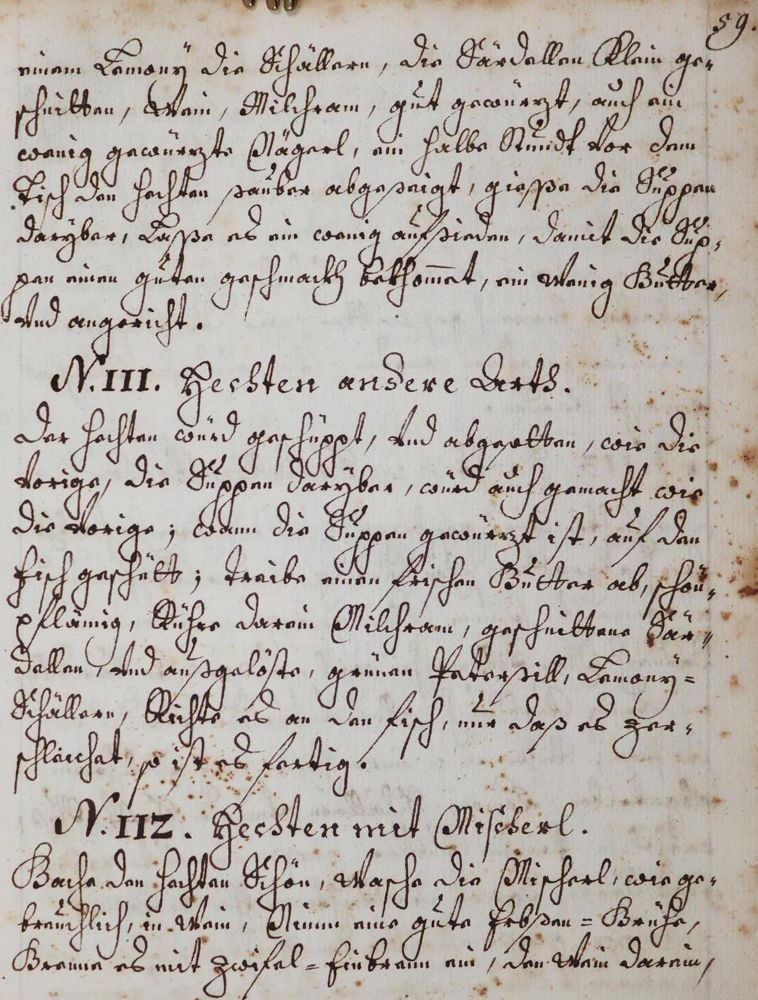 59.
einem Lemony die Schällern, die Särdellen Klein ge-
schnitten, Wein, Milchram, gut gewürzt, auch ein
wenig gewürzte Nägerl, ein halbe Stundt vor dem
Tisch den Hechten sauber abgeseigt, giesse die Suppen
daryber, Lasse es ein wenig aufsieden, damit die Sup-
pen einen guten geschmackh bekhom̄et, ein wenig Butter,
Vnd angericht.
N. 111. Hechten andere Arth.
Der Hechten würd geschüppt, Vnd abgesotten, wie die
Vorige, die Suppen daryber, würd auch gemacht wie
die Vorige; wann die Suppen gewürzt ist, auf den
Fisch geschütt; treibe einen frischen Butter ab, schön-
pflämig, Rühre darein Milchram, geschnittene Sär-
dellen, Vnd außgelöste, grünen Petersill, Lemony=
Schällern, Richte es an den Fisch, nur daß es zer-
schleichet, so ist es fertig.
N. 112. Hechten mit Mischerl.
Bache den Hechten Schön, Wasche die Mischerl, wie ge-
breuchlich, in Wein, Nimm eine gute Erbsen=Brühe,
Brenne es mit Zwifel=Einbrenn ein, den Wein darein,